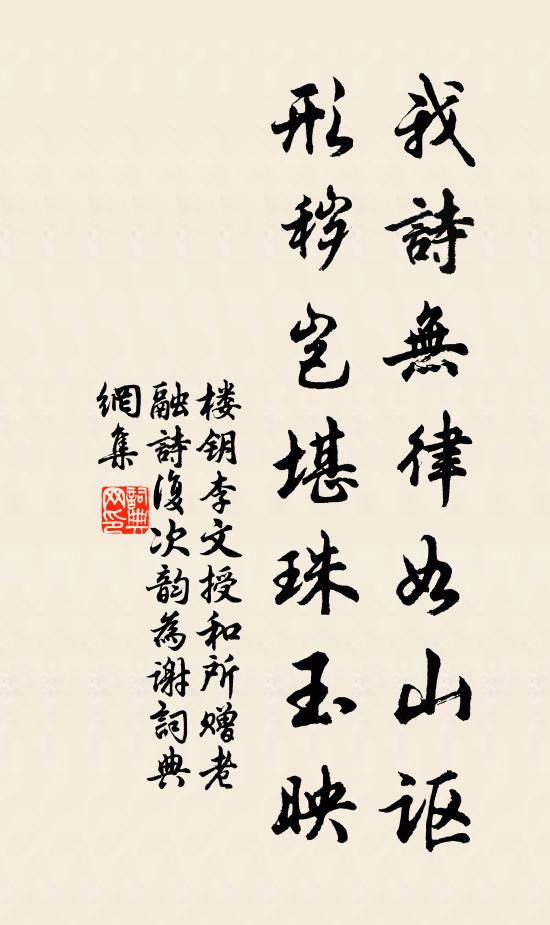 我詩無律如山讴
形秽岂堪珠玉映
楼钥李文授和所赠老
融詩復次韵為谢詞典
網集
詞典
网印